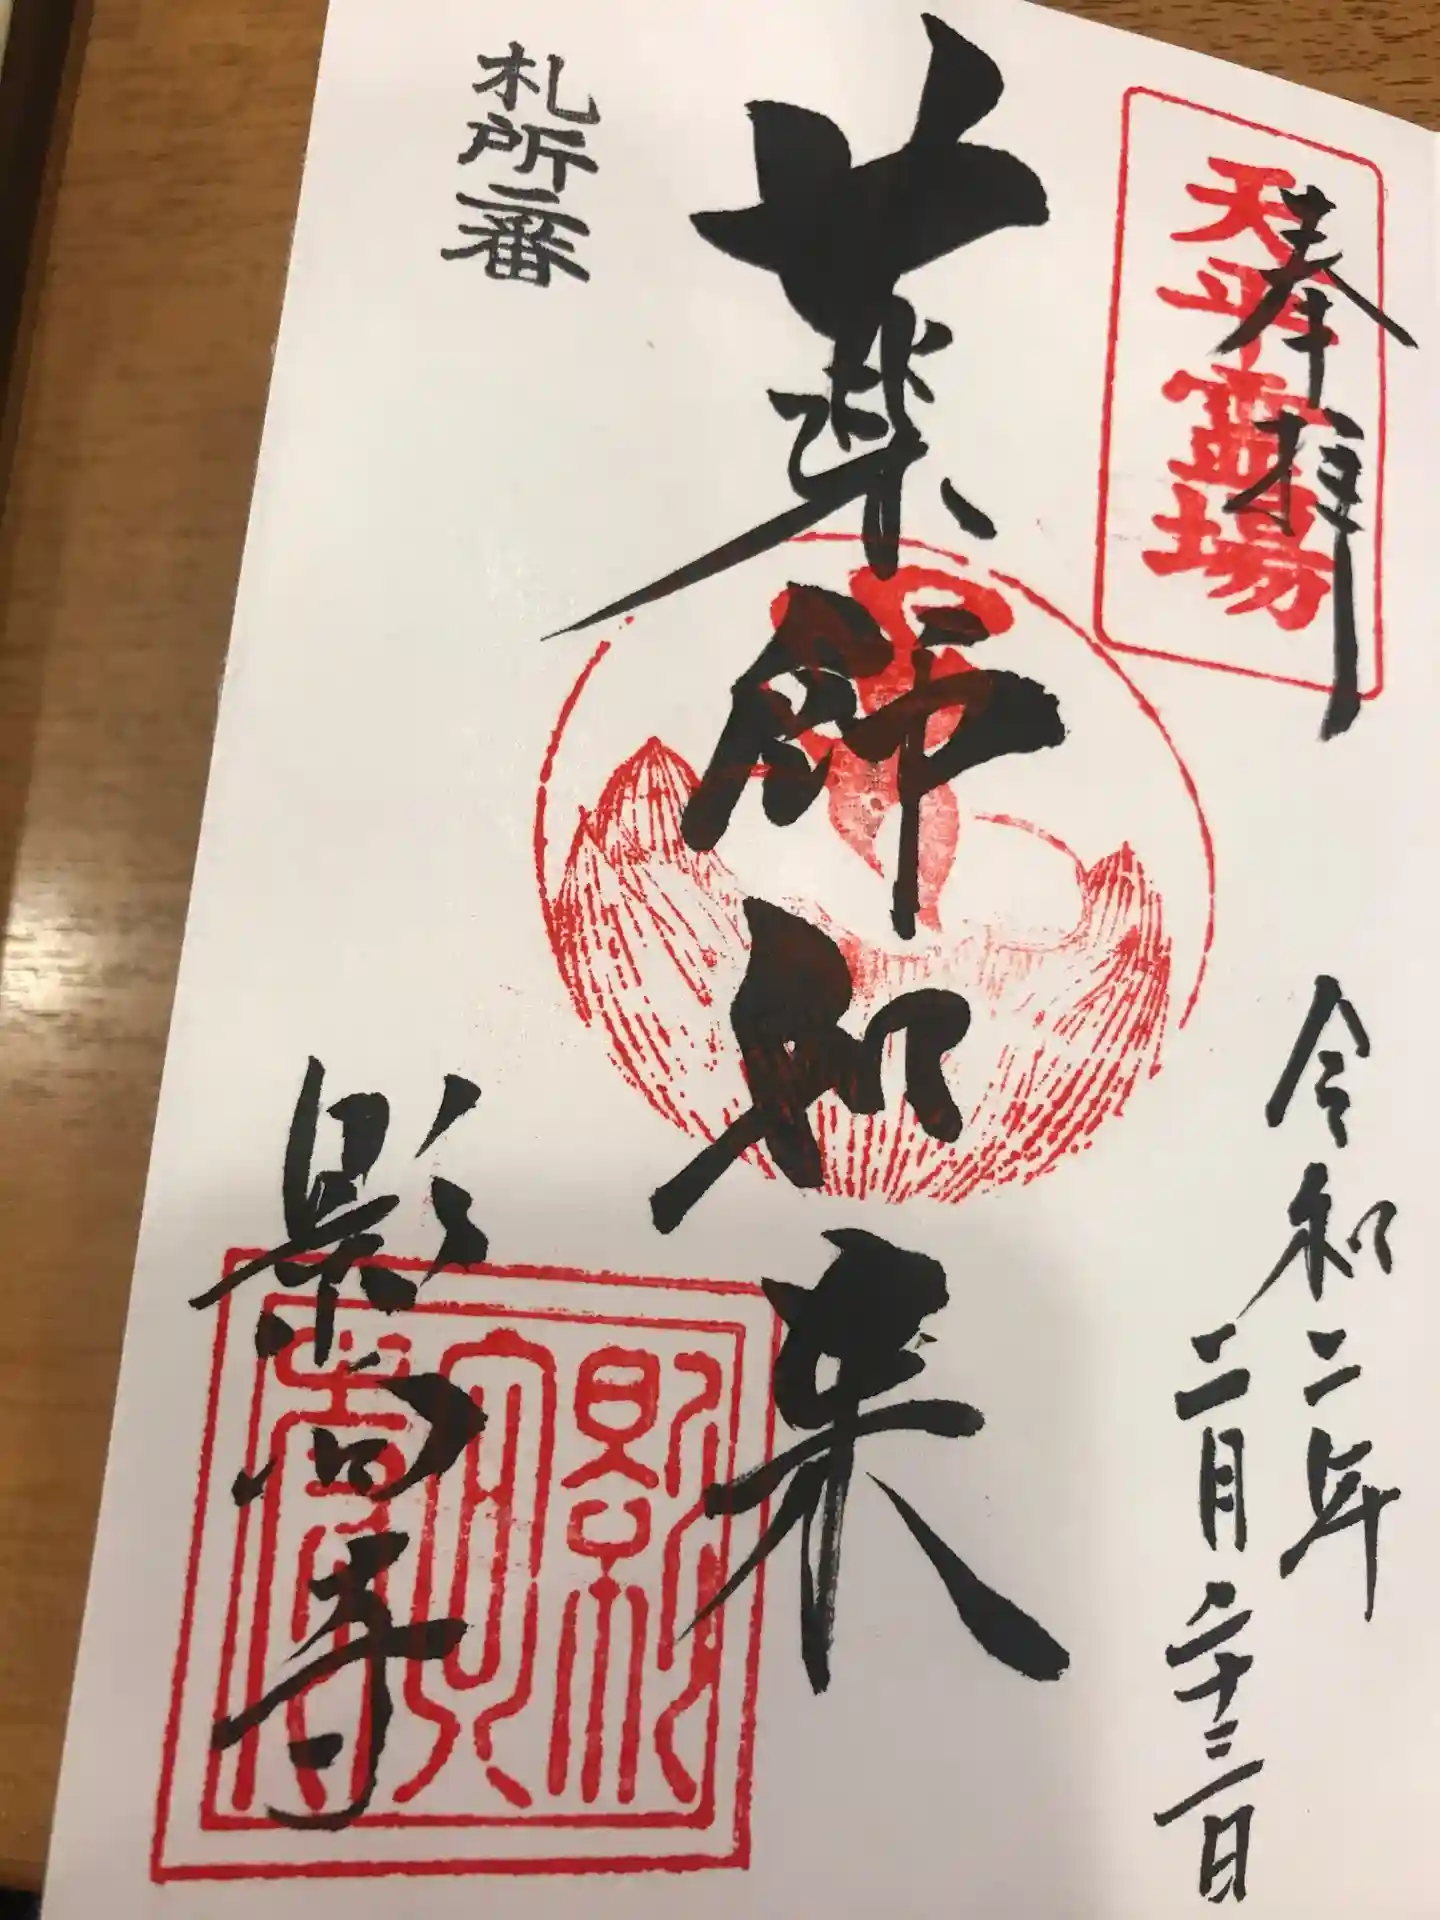 奉拝
天平霊場
令和二年
二月二十三日
薬師如来
札所二番
影向寺